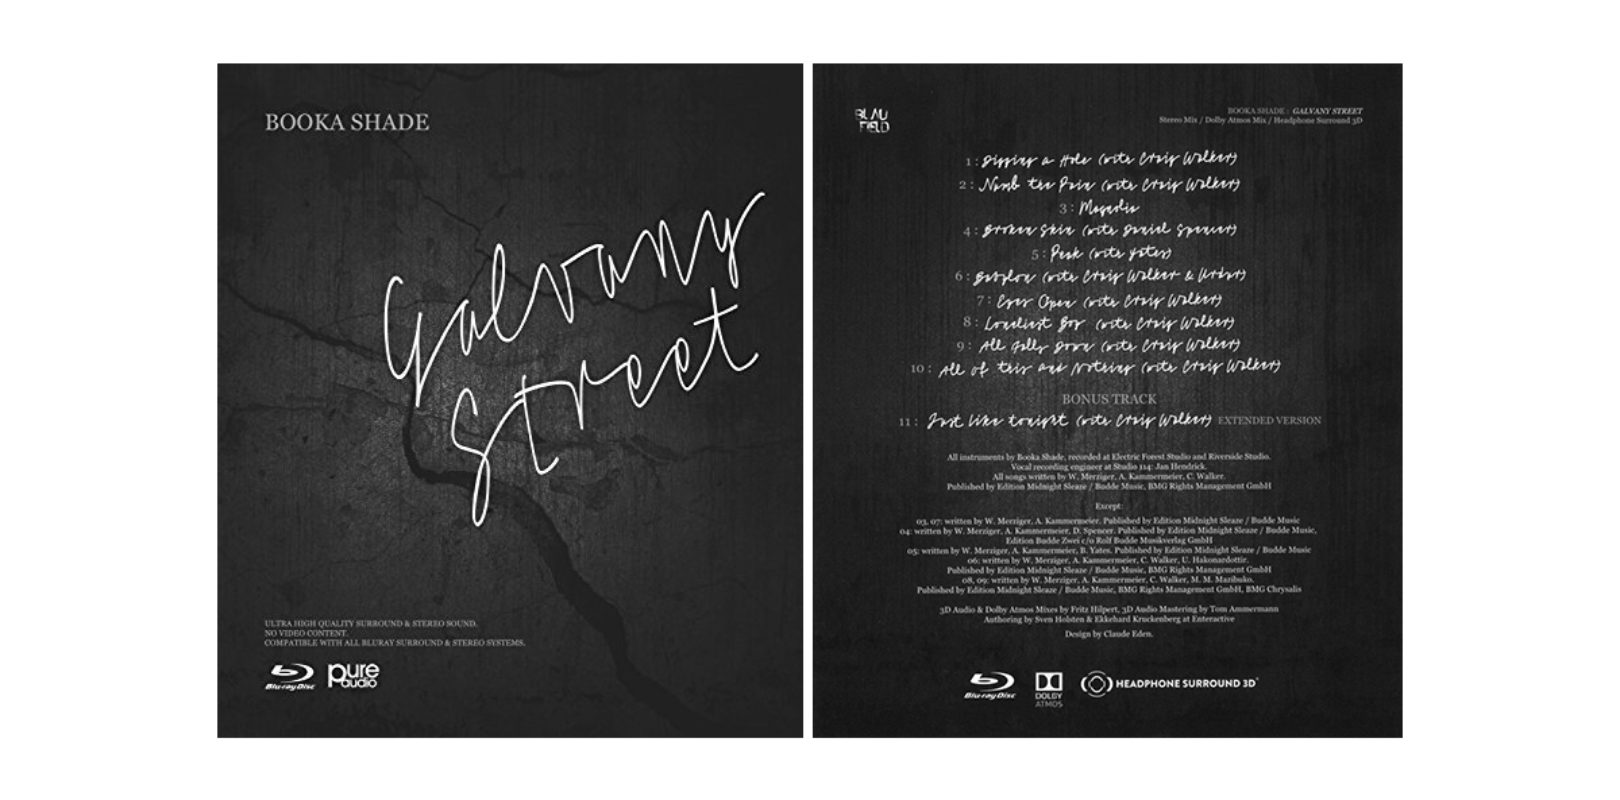 BOOKA SHADE
Galvany
Street
ULTRA HIGH QUALITY SURROUND & STEREO SOUND.
NO VIDEO CONTENT.
COMPATIBLE WITH ALL BLURAY SURROUND & STEREO SYSTEMS.
Blu-ray Disc pure audio
BLAU
FIELD
BOOKA SHADE : GALVANY STREET
Stereo Mix / Dolby Atmos Mix / Headphone Surround 3D
1: Digging a Hole (with Craig Walker)
2: Numb the Pain (with Craig Walker)
3: Magnolia
4: Broken Skin (with Daniel Spencer)
5: Peak (with Yates)
6: Babylon (with Craig Walker & Urdur)
7: Eyes Open (with Craig Walker)
8: Loneliest Boy (with Craig Walker)
9: All Falls Down (with Craig Walker)
10: All of this and Nothing (with Craig Walker)
BONUS TRACK
11: Just like tonight (with Craig Walker) EXTENDED VERSION
All instruments by Booka Shade, recorded at Electric Forest Studio and Riverside Studio.
Vocal recording engineer at Studio 114: Jan Hendrick.
All songs written by W. Merziger, A. Kammermeier, C. Walker.
Published by Edition Midnight Sleaze / Budde Music, BMG Rights Management GmbH
Except:
03, 07: written by W. Merziger, A. Kammermeier. Published by Edition Midnight Sleaze / Budde Music
04: written by W. Merziger, A. Kammermeier, D. Spencer. Published by Edition Midnight Sleaze / Budde Music,
Edition Budde Zwei c/o Rolf Budde Musikverlag GmbH
05: written by W. Merziger, A. Kammermeier, B. Yates. Published by Edition Midnight Sleaze / Budde Music
06: written by W. Merziger, A. Kammermeier, C. Walker, U. Hakonardottir.
Published by Edition Midnight Sleaze / Budde Music, BMG Rights Management GmbH
08, 09: written by W. Merziger, A. Kammermeier, C. Walker, M. M. Mazibuko.
Published by Edition Midnight Sleaze / Budde Music, BMG Rights Management GmbH, BMG Chrysalis
3D Audio & Dolby Atmos Mixes by Fritz Hilpert, 3D Audio Mastering by Tom Ammermann
Authoring by Sven Holsten & Ekkehard Kruckenberg at Enteractive
Design by Claude Eden.
Blu-ray Disc DOLBY ATMOS HEADPHONE SURROUND 3D